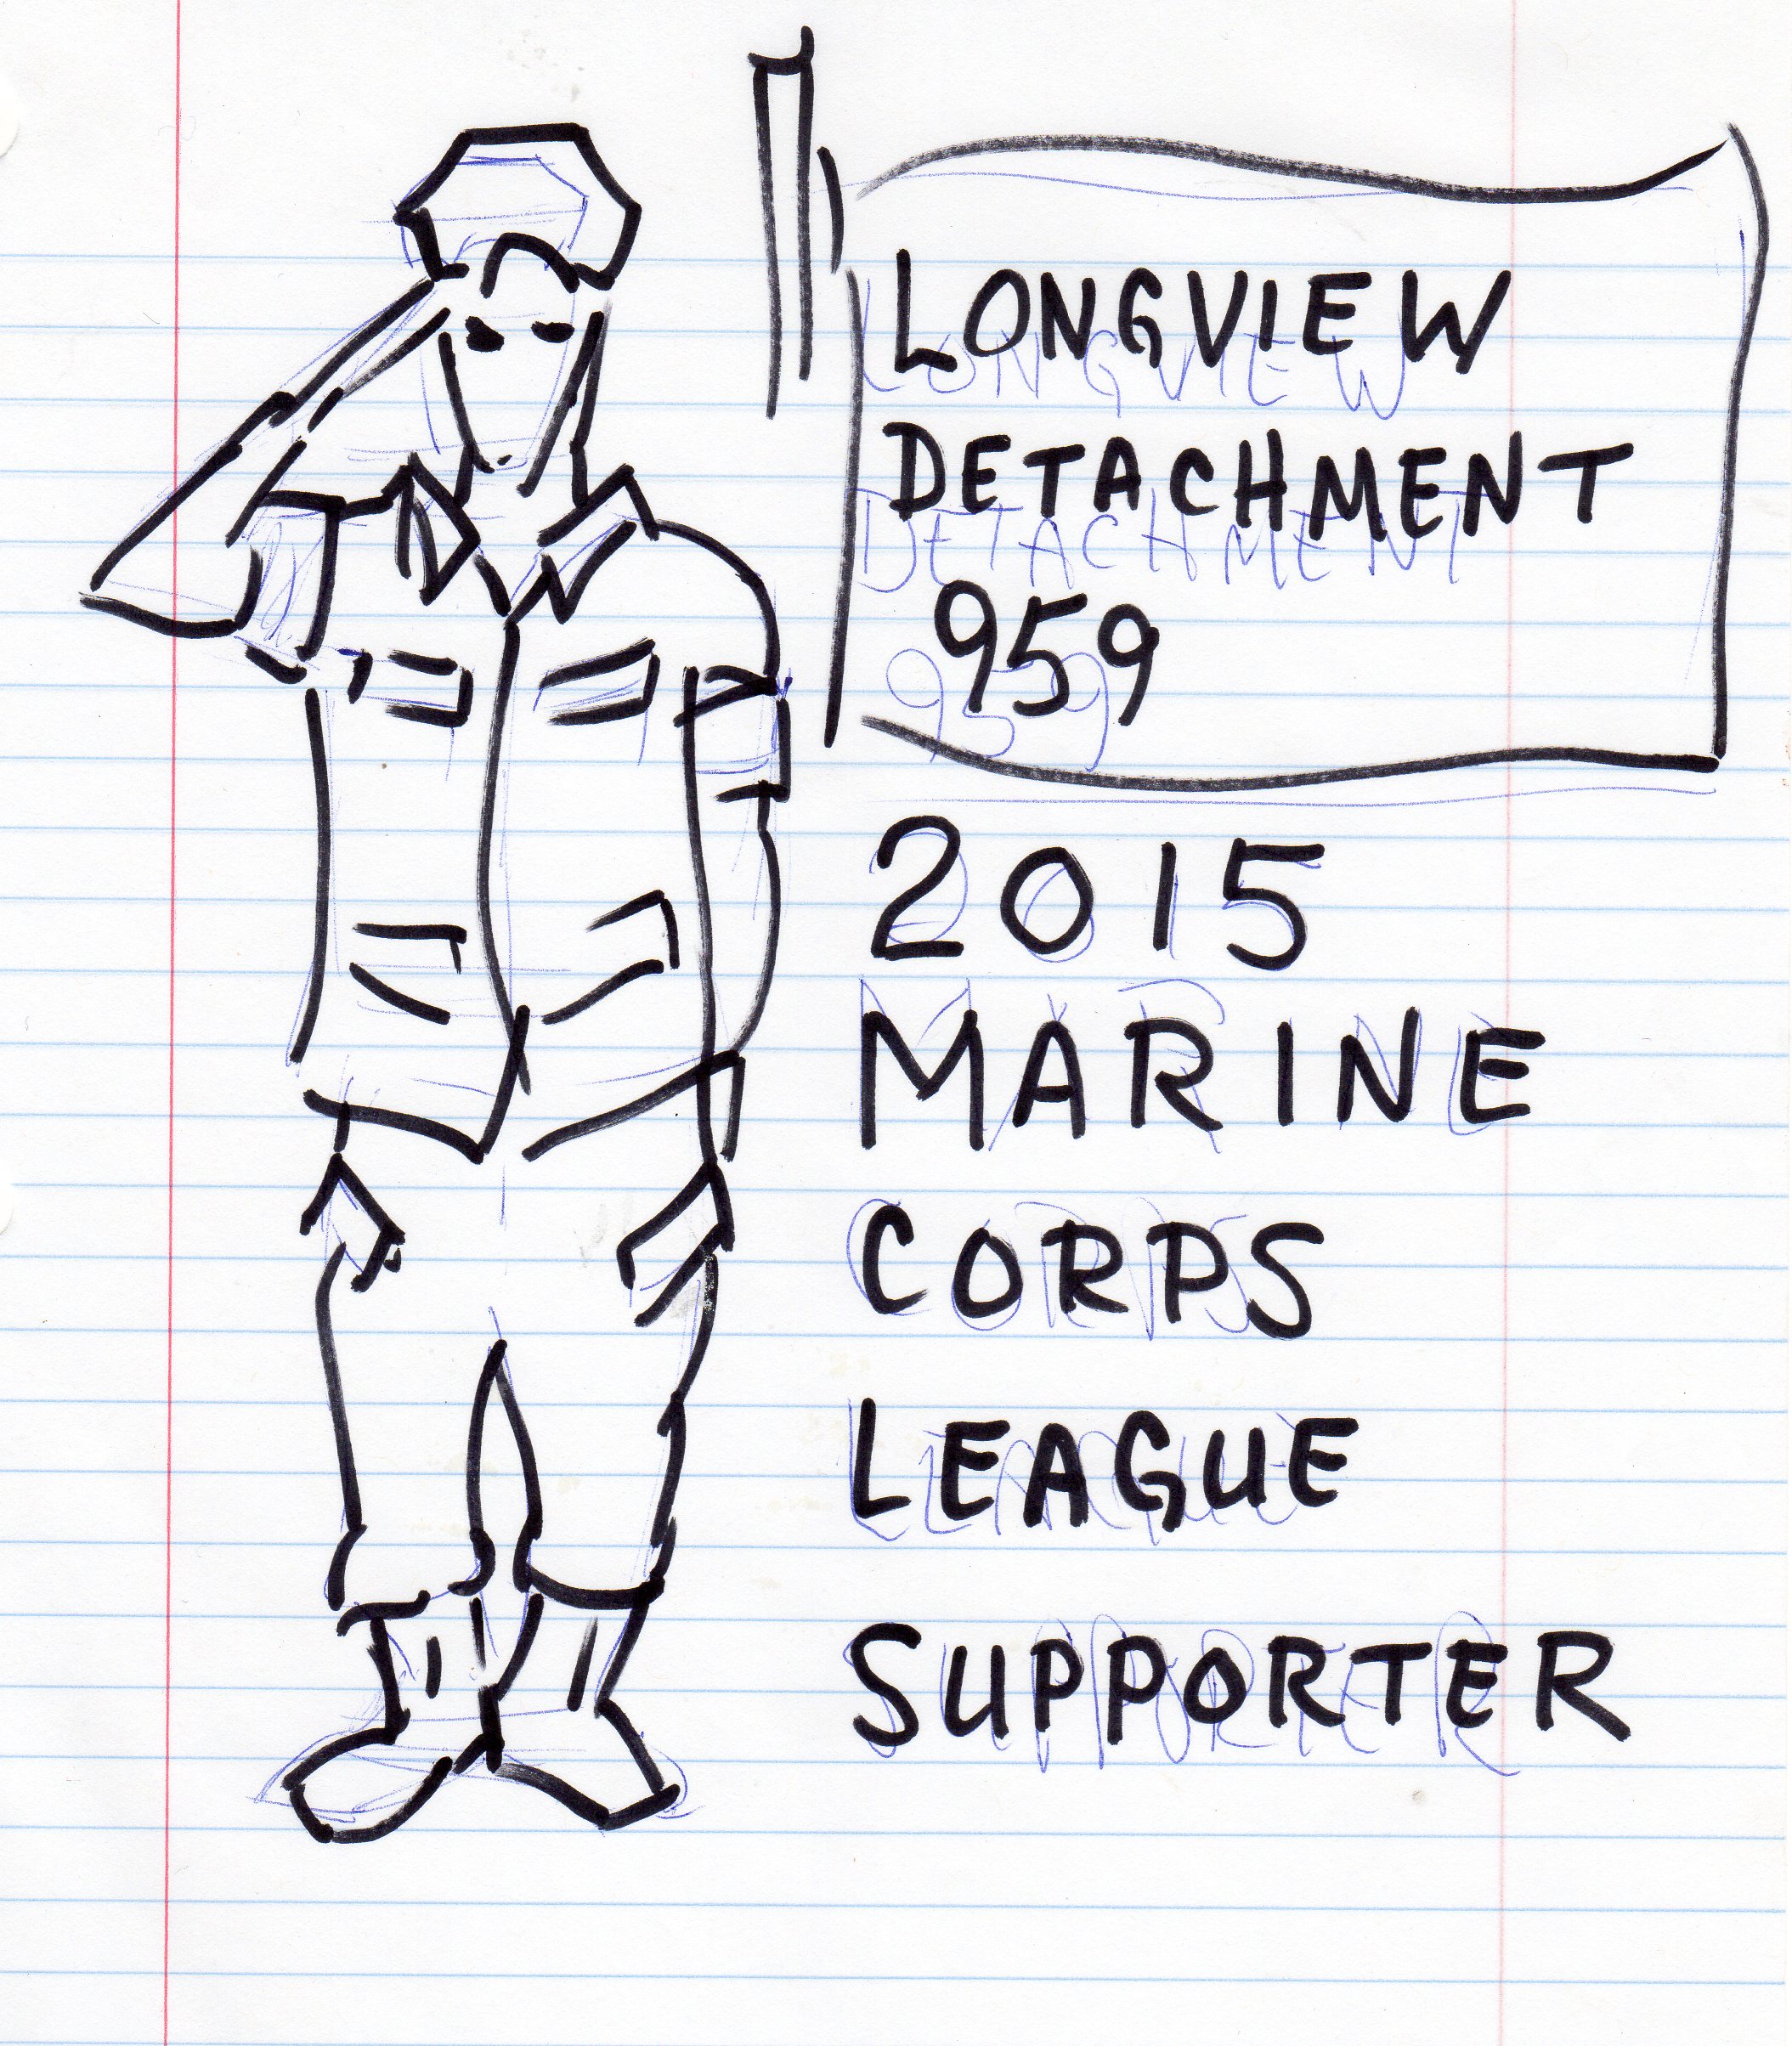 LONGVIEW
DETACHMENT
959
2015
MARINE
CORPS
LEAGUE
SUPPORTER